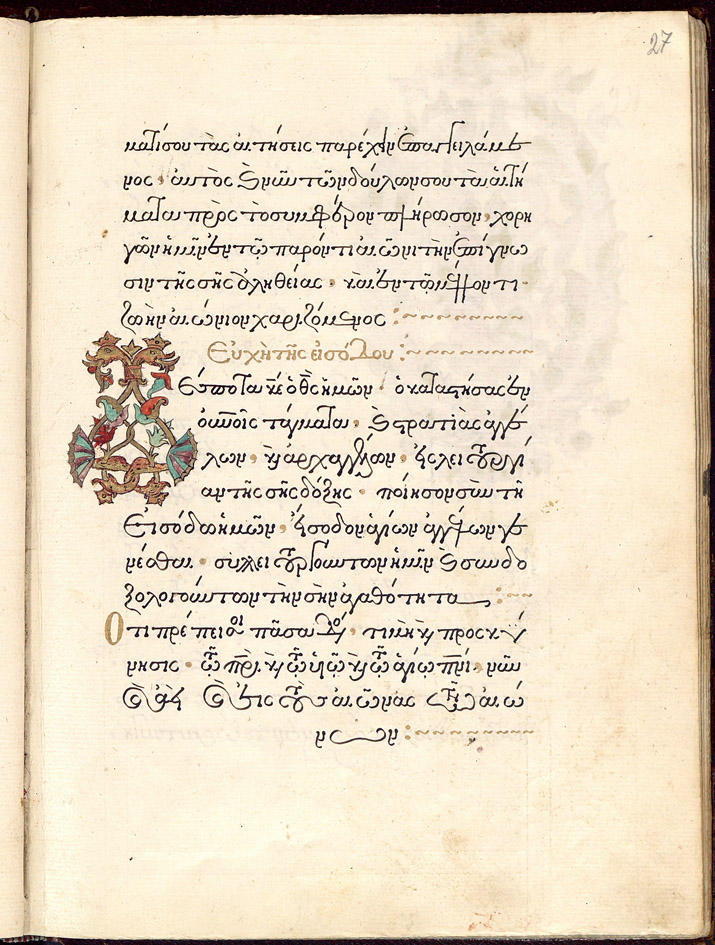 27
ματί σου τὰς αἰτήσεις παρέχειν ἐπαγγειλάμε
νος· αὐτὸς καὶ νῦν τῶν δούλων σου τὰ αἰτή
ματα πρὸς τὸ συμφέρον πλήρωσον, χορη
γῶν ἡμῖν ἐν τῷ παρόντι αἰῶνι τὴν ἐπίγνω
σιν τῆς σῆς ἀληθείας· καὶ ἐν τῷ μέλλοντι
ζωὴν αἰώνιον χαριζόμενος :~
Εὐχὴ τῆς εἰσόδου :~
Δέσποτα κε ὁ θς ἡμῶν· ὁ καταστήσας ἐν
οὐνοῖς τάγματα· καὶ στρατιὰς ἀγγέ
λων καὶ ἀρχαγγέλων· εἰς λειτουργί
αν τῆς σῆς δόξης· ποίησον σὺν τῇ
εἰσόδω ἡμῶν· εἴσοδον ἁγίων ἀγγέλων γε
νέσθαι· συλλειτουργούντων ἡμῖν καὶ συνδο
ξολογούντων τὴν σὴν ἀγαθότητα :~
Ὅτι πρέπει σοι πᾶσα δόξα, τιμὴ καὶ προσκύ
νησις· τῷ πρι καὶ τῷ υἱῷ καὶ τῷ ἁγίω πνι, νῦν
καὶ ἀεὶ καὶ εἰς τοὺς αἰῶνας τῶν αἰώ
νων :~